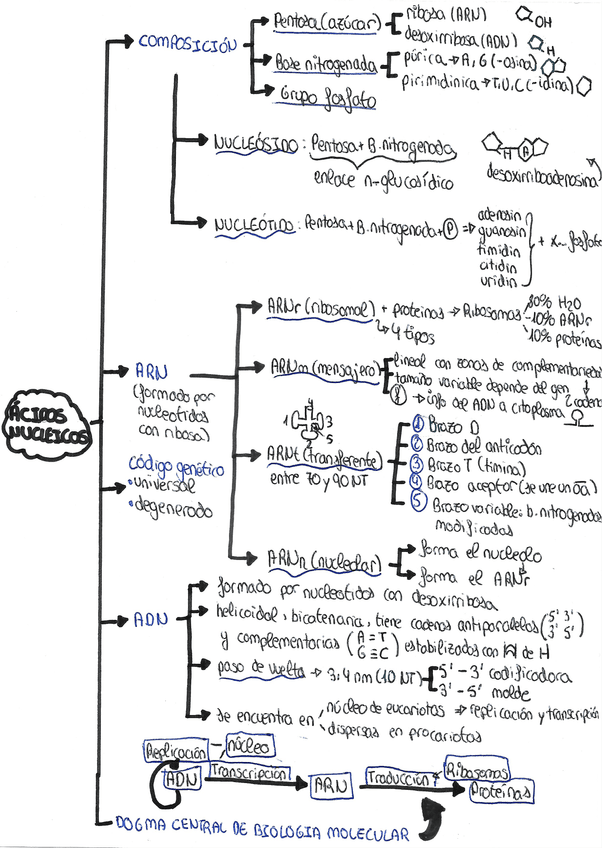 ÁCIDOS NUCLEICOS
COMPOSICIÓN
Pentosa (azúcar)
ribosa (ARN) OH
desoxirribosa (ADN) H
Base nitrogenada
púrica → A, G (-osina)
pirimidínica → T, U, C (-idina)
Grupo fosfato
NUCLEÓSIDO: Pentosa + B. nitrogenada
enlace n-glucosídico
H A
desoxirriboadenosina
NUCLEÓTIDO: Pentosa + B. nitrogenada + P ⇒
adenosin
guanosin
timidin
citidin
uridin
+ x- fosfato
ARN
(formado por
nucleotidos
con ribosa)
ARNr (ribosomal) + proteinas → Ribosomas
↳ 4 tipos
80% H2O
10% ARNr
10% proteínas
ARNm (mensajero)
lineal con zonas de complementariedad
tamaño variable depende del gen
⇒ info del ADN a citoplasma
1 4 3 5
ARNt (transferente)
entre 70 y 90 NT
1 Brazo D
2 Brazo del anticodón
3 Brazo T (timina)
4 Brazo aceptor (se une un aa)
5 Brazo variable: b. nitrogenadas
modificadas
ARNn (nucleolar)
forma el nucleolo
forma el ARNr
código genético
• universal
• degenerado
ADN
formado por nucleotidos con desoxirribosa
helicoidal, bicatenaria, tiene cadenas antiparalelas (5' 3'
3' 5')
y complementarias (A = T
G ≡ C) estabilizados con de H
paso de vuelta → 3,4 nm (10 NT)
5' - 3' codificadora
3' - 5' molde
se encuentra en
núcleo de eucariotas ⇒ replicación y transcripción
dispersas en procariotas
Replicación - núcleo
ADN Transcripción ARN Traducción Ribosomas
Proteínas
DOGMA CENTRAL DE BIOLOGIA MOLECULAR